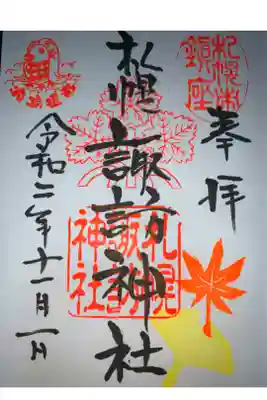 奉拝
札幌市
鎮座
札幌諏訪神社
札幌
諏訪
神社
令和二年十一月一日